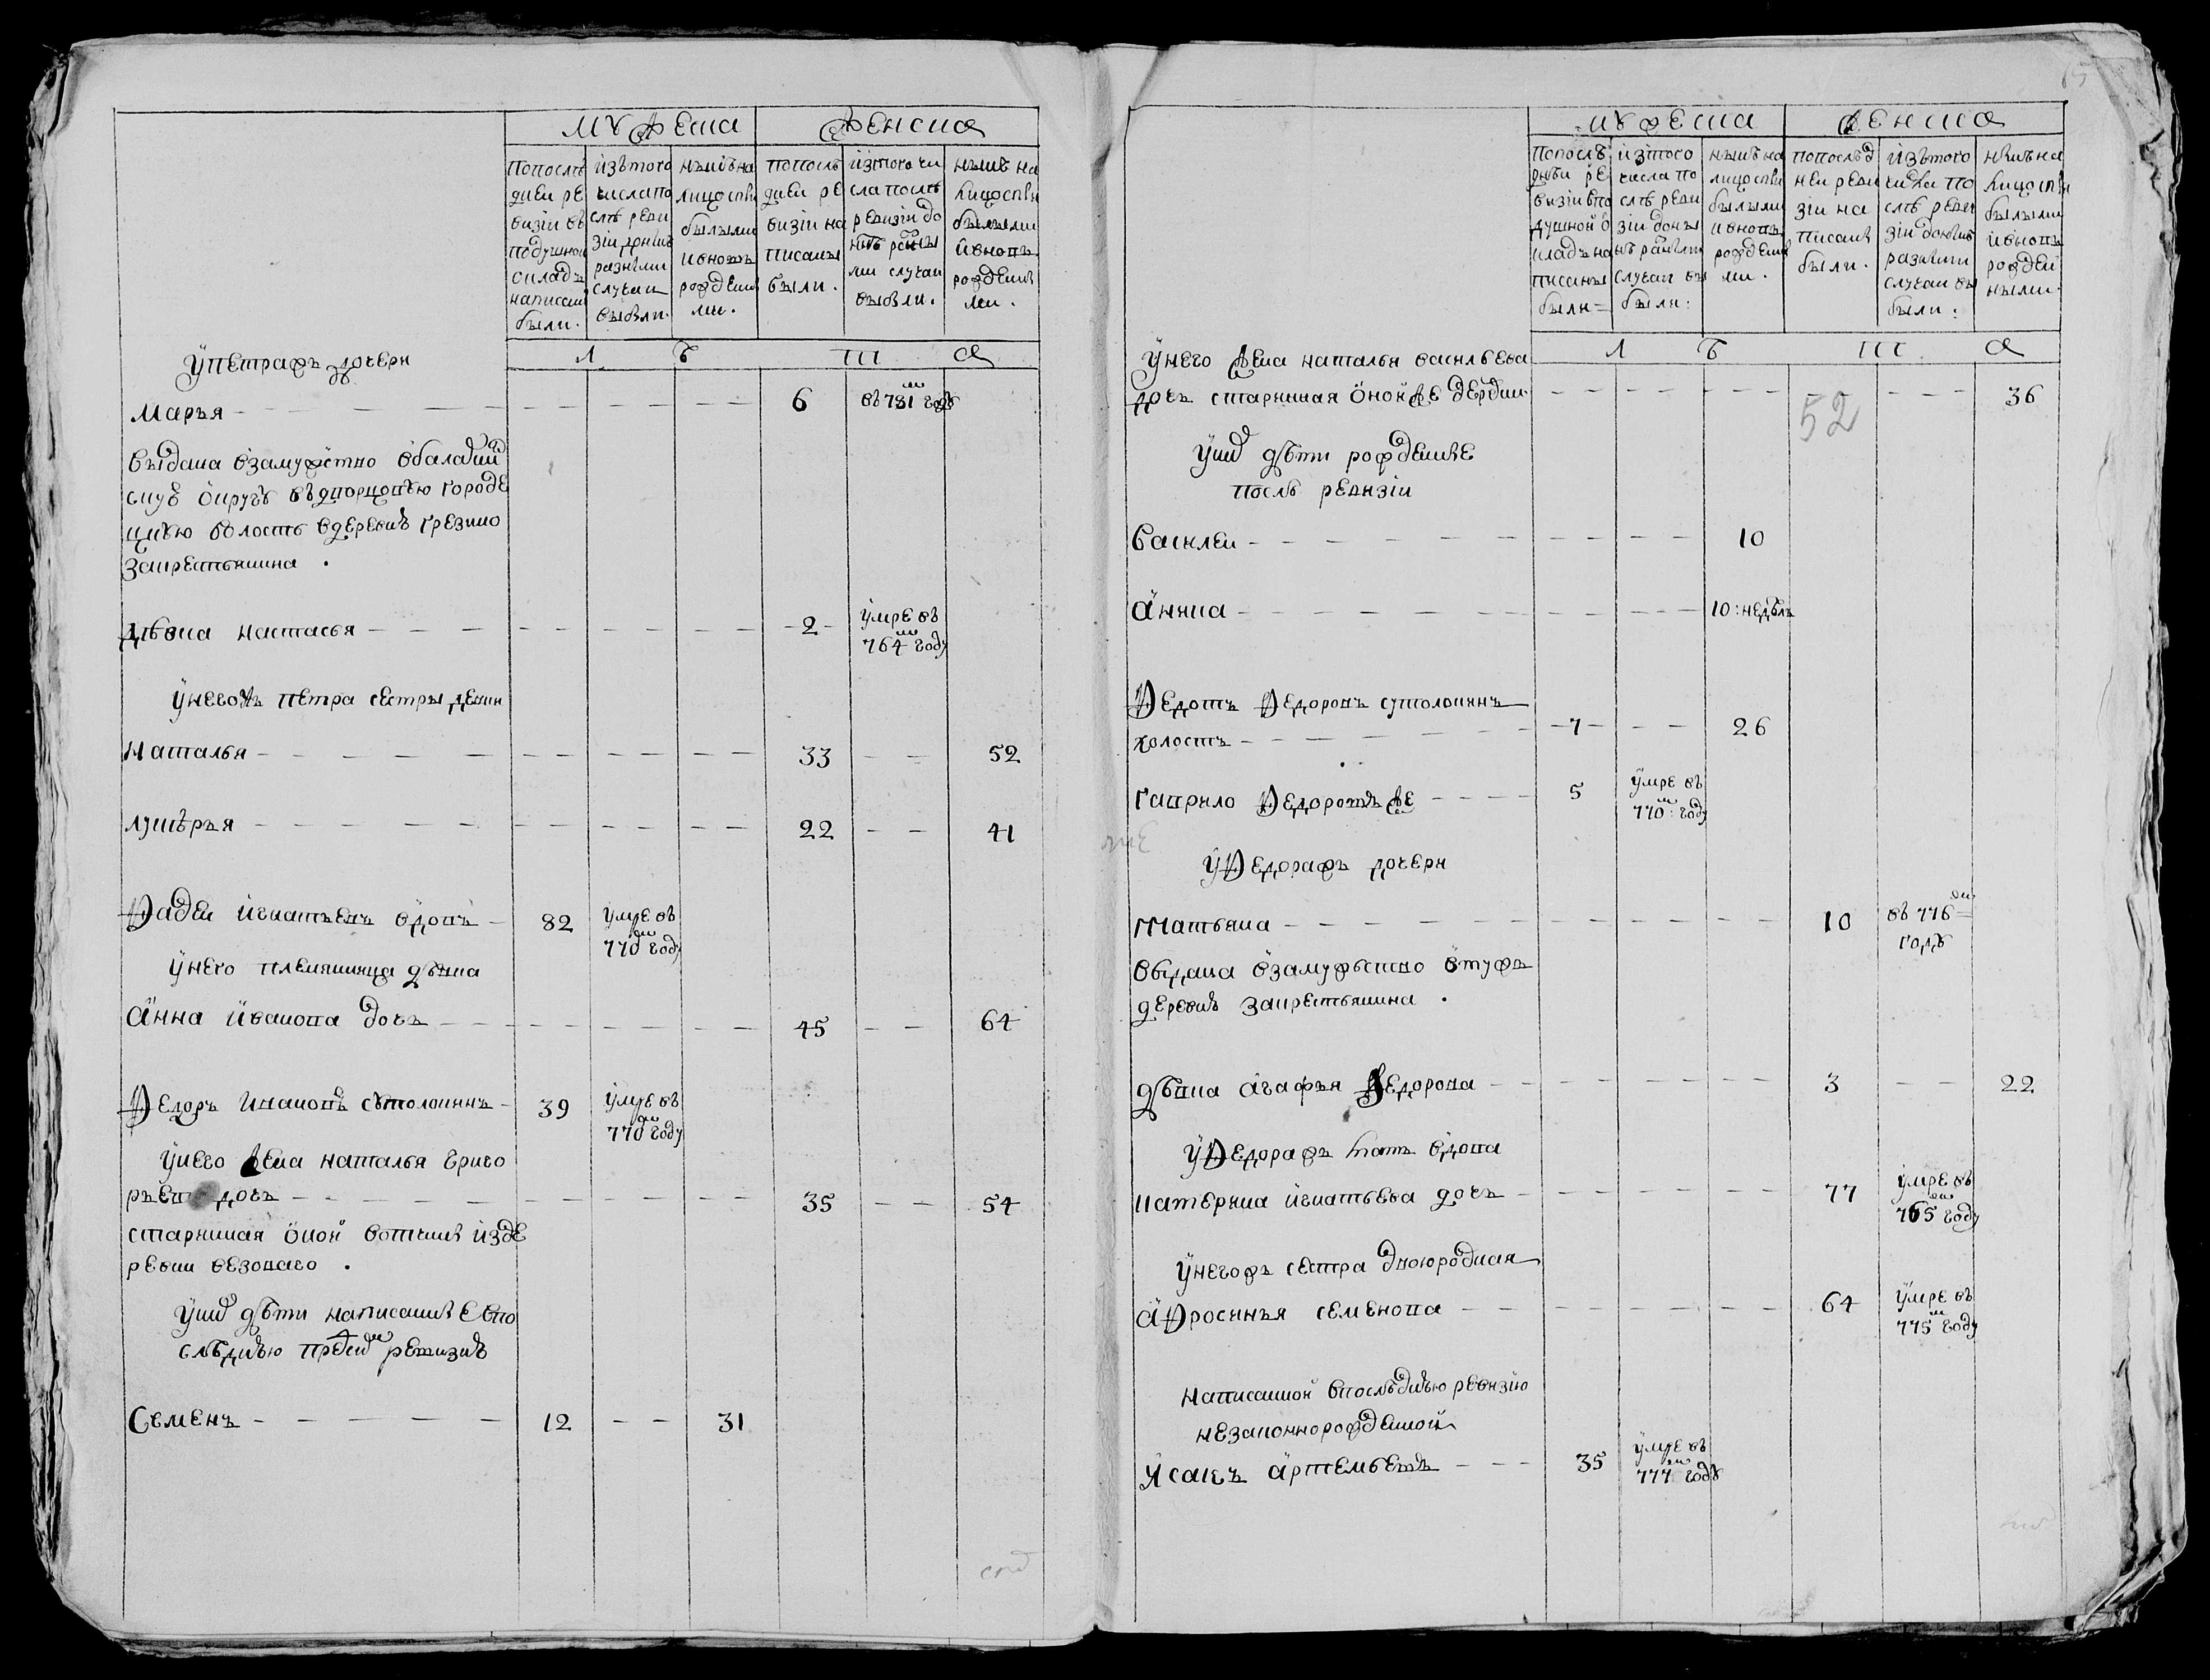 мужеска
женска
попослѣ
днеи ре
визіи въ
подушнои
складъ
написан
были.
изътого
числапо
слѣ реви
зіи донынѣ
разными
случаи
выбыли.
нынѣна
лицо сни
былыми
ивновь
рожденны
ми.
попослѣ
днеи ре
визіи на
писаны
были.
изтого чи
сла послѣ
ревизіи до
нынѣ разны
ми случаи
выбыли.
нынѣ на
лицо сни
былыми
ивновь
рожденны
ми.
Л Ѣ Т А
упетражъ дочери
Марья 6 въ 781 году
выдана взамужство вбалахни
скую округъ
цкую волость вдеревню грезино
закрестьянина .
дѣвка настасья 2 умре въ
764 году
унегожъ петра сестры девки
Наталья 33 52
лукѣрья 22 41
Фадеи игнатьевъ вдовъ 82 умре въ
770 году
унего племянница дѣвка
Анна иванова дочь 45 64
Федоръ ивановъ сутолокинъ 39 умре въ
770 году
унего жена наталья григо
рьев дочь 35 54
старинная онои вотчины изде
ревни везоваго .
уних дѣти написанные впо
слѣднюю пред сим ревизию
Семенъ 12 31
65
мужеска
женска
попослѣ
днеи ре
визіи впо
душнои о
кладъ на
писаны
были
изтого
числа по
слѣ реви
зіи доны
нѣ разными
случаи вы
были:
нынѣ на
лицо сни
былыми
ивновь
рожденны
ми.
попослѣд
неи реви
зіи на
писаны
были.
изътого
числа по
слѣ реви
зіи донынѣ
разными
случаи вы
были.
нынѣ на
лицо сни
былыми
ивновь
рожден
ными.
Л Ѣ Т А
унего жена наталья васильева
дочь старинная онои же деревни 36
52
уних дѣти рожденные
послѣ ревизіи
Василеи 10
Аника 10: недѣль
Федотъ Федоровъ сутолокинъ
холостъ 7 26
Гаврило Федоровъ же 5 умре въ
770: году
уФедоражъ дочери
Татьяна 10 въ 776
годъ
выдана взамужьство втужъ
деревню закрестьянина .
дѣвка агафья Федорова 3 22
уФедоражъ мать вдова
катерина игнатьева дочь 77 умре въ
765 году
унегожъ сестра двоюродная
аФросинья семенова 64 умре въ
775 году
написаннои впослѣднюю ревизію
незаконнорожденнои
Исакъ артемьевъ 35 умре въ
777 годъ